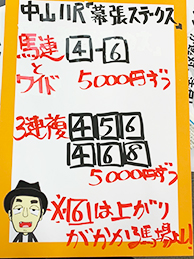 中山11R『幕張ステークス』
馬連 4-6
と
ワイド 5000円ずつ
3連複 456
468
5000円ずつ
※6は上がり
がかかる馬場なら!